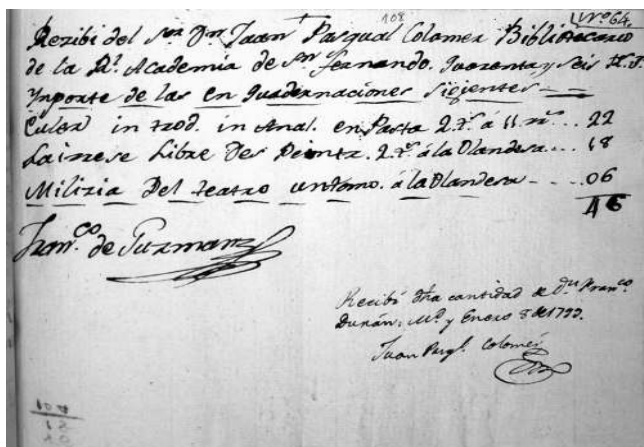 108
Nº 64.
Rezibi del Sor Dn Juan Pasqual Colomer Bibliotecario
de la Rl. Academia de Sn fernando. Quarenta y seis
Ynporte de las en quadernaciones sigientes
Euler in trod. in Anal. en Pasta 2. á 11 22
Lairese Libre Des Peintr. 2. á la Olandesa 18
Milizia Del teatro un tomo. á la Olandesa 06
46
Franco de Guzman
Recibi dha cantidad de Dn Franco
Durán. Md. y Enero 8 de 1799.
Juan Pasql. Colomer